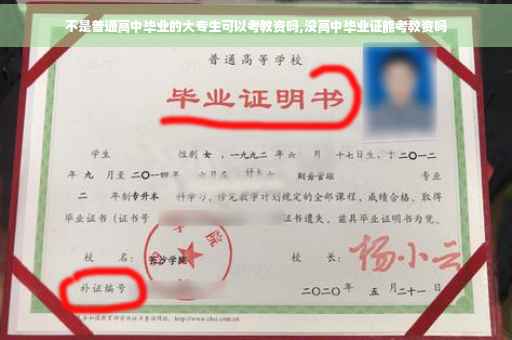 不是普通高中毕业的大专生可以考教资吗,没高中毕业证能考教资吗
普通高等学校
毕业证明书
学生 性别 女 ,一九九二年 六 月 十七日生,于 二〇一二
年 九 月至 二〇一四年 六月在 财务管理 专业
二 年制 专升本 科学习,修完教学计划规定的全部课程,成绩合格,取得
毕业证书(证书号 证书遗失,兹具毕业证明书为凭。
校 名: 长沙学院 校 长: 杨小云
补证编号 二〇二〇年 五 月 二十一日